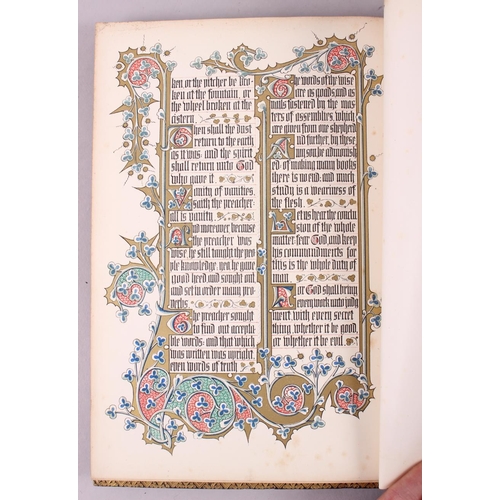 ken or the pitcher be bro-
ken at the fountain, or
the wheel broken at the
cistern.
Then shall the dust
return to the earth
as it was: and the spirit
shall return unto God
who gave it.
Vanity of vanities,
saith the preacher:
all is vanity.
And moreover because
the preacher was
wise he still taught the peo-
ple knowledge, yea he gave
good heed and sought out,
and set in order many pro-
verbs.
The preacher sought
to find out accepta-
ble words: and that which
was written was upright,
even words of truth.
The words of the wise
are as goads, and as
nails fastened by the mas-
ters of assemblies, which
are given from one shepherd
And further, by these
my son, be admonish-
ed: of making many books
there is no end: and much
study is a weariness of
the flesh.
Let us hear the conclu-
sion of the whole
matter: fear God, and keep
his commandments for
this is the whole duty of
man.
For God shall bring
every work unto judg-
ment with every secret
thing, whether it be good,
or whether it be evil.